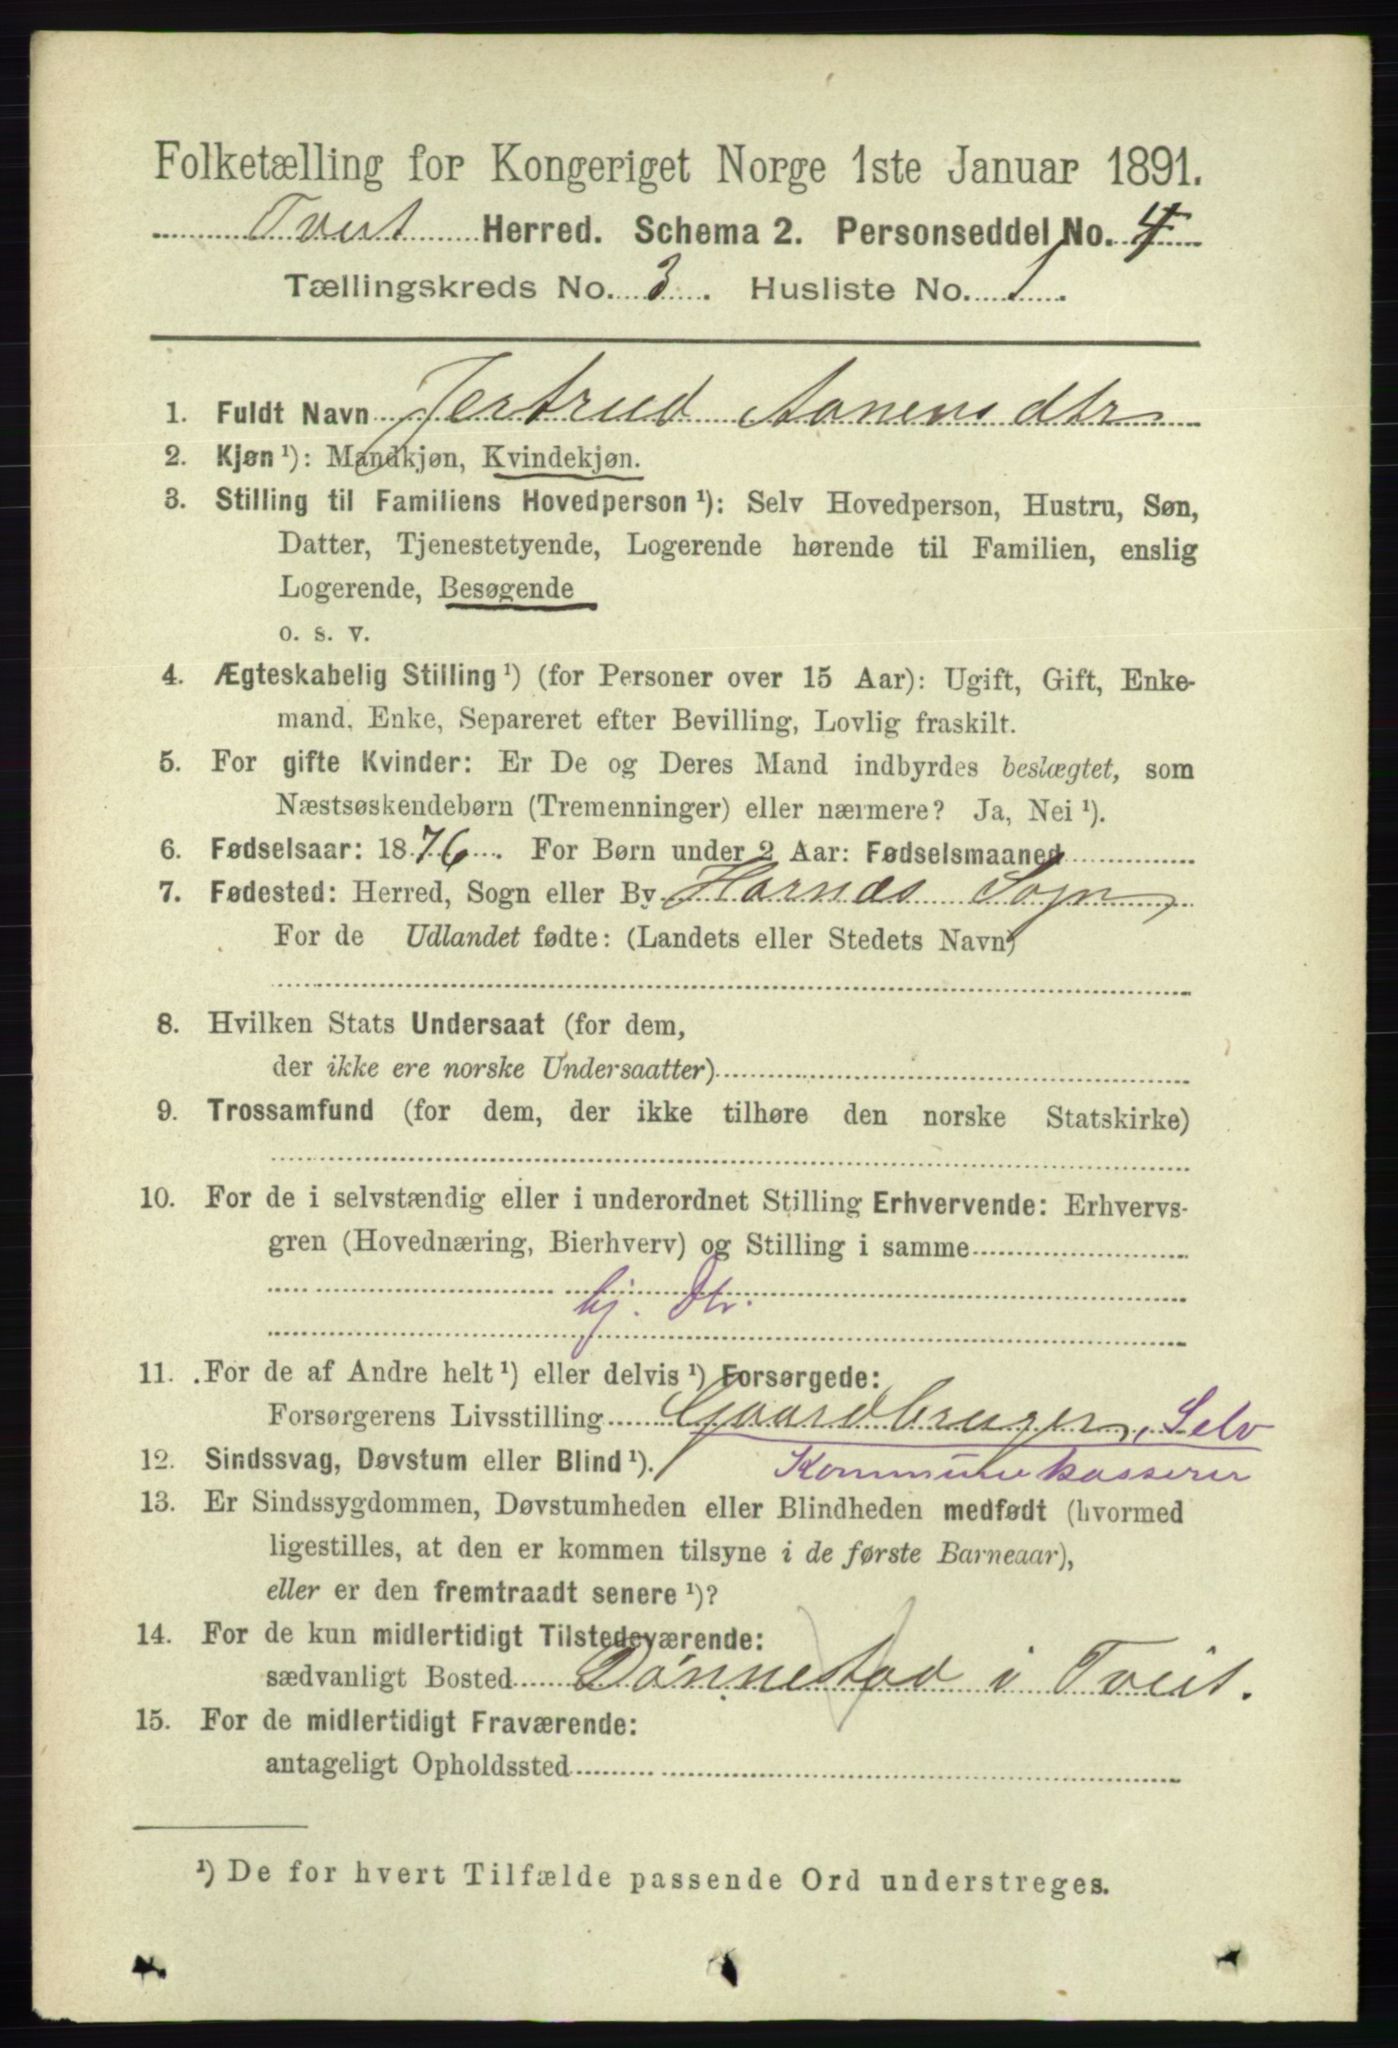 Folketælling for Kongeriget Norge 1ste Januar 1891.
Tveit Herred. Schema 2. Personseddel No. 4
Tællingskreds No. 3. Husliste No. 1.
1. Fuldt Navn Jertrud Aanensdtr
2. Kjøn ¹): Mandkjøn, Kvindekjøn.
3. Stilling til Familiens Hovedperson ¹): Selv Hovedperson, Hustru, Søn,
Datter, Tjenestetyende, Logerende hørende til Familien, enslig
Logerende, Besøgende
o. s. v.
4. Ægteskabelig Stilling ¹) (for Personer over 15 Aar): Ugift, Gift, Enke-
mand, Enke, Separeret efter Bevilling, Lovlig fraskilt.
5. For gifte Kvinder: Er De og Deres Mand indbyrdes beslægtet, som
Næstsøskendebørn (Tremenninger) eller nærmere? Ja, Nei ¹).
6. Fødselsaar: 1876. For Børn under 2 Aar: Fødselsmaaned
7. Fødested: Herred, Sogn eller By Hornæs Sogn,
For de Udlandet fødte: (Landets eller Stedets Navn)
8. Hvilken Stats Undersaat (for dem,
der ikke ere norske Undersaatter)
9. Trossamfund (for dem, der ikke tilhøre den norske Statskirke)
10. For de i selvstændig eller i underordnet Stilling Erhvervende: Erhvervs-
gren (Hovednæring, Bierhverv) og Stilling i samme
hj. Dtr.
11. For de af Andre helt ¹) eller delvis ¹) Forsørgede:
Forsørgerens Livsstilling Gaardbruger, Selv
12. Sindssvag, Døvstum eller Blind ¹). Kommunekasserer
13. Er Sindssygdommen, Døvstumheden eller Blindheden medfødt (hvormed
ligestilles, at den er kommen tilsyne i de første Barneaar),
eller er den fremtraadt senere ¹)?
14. For de kun midlertidigt Tilstedeværende:
sædvanligt Bosted Dønnestad i Tveit.
15. For de midlertidigt Fraværende:
antageligt Opholdssted
¹) De for hvert Tilfælde passende Ord understreges.